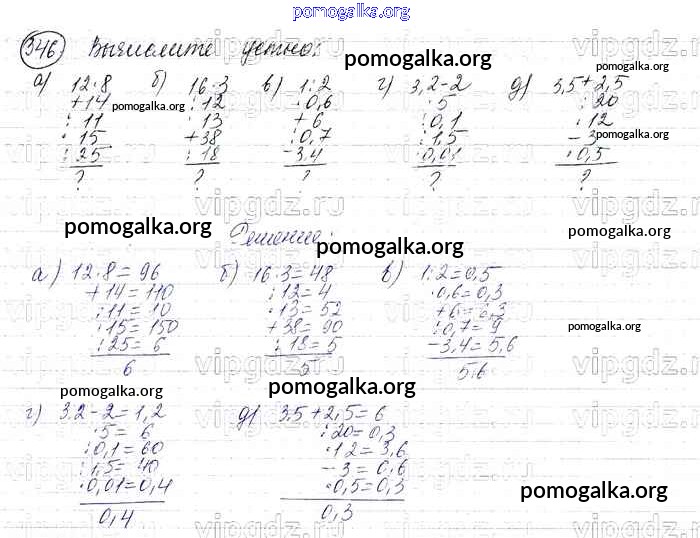 pomogalka.org
346. Вычислите устно:
а) 12·8 б) 16·3 в) 1:2 г) 3,2-2 д) 3,5+2,5
+14 :12 ·0,6 ·5 :20
:11 ·13 +6 :0,1 ·12
·15 +38 :0,7 :1,5 -3
:25 :18 -3,4 ·0,01 ·0,5
? ? ? ? ?
pomogalka.org
pomogalka.org
pomogalka.org
pomogalka.org
Решение:
pomogalka.org
pomogalka.org
а) 12·8=96 б) 16·3=48 в) 1:2=0,5
+14=110 :12=4 ·0,6=0,3
:11=10 ·13=52 +6=6,3
·15=150 +38=90 :0,7=9
:25=6 :18=5 -3,4=5,6
6 5 5,6
pomogalka.org
pomogalka.org
pomogalka.org
г) 3,2-2=1,2 д) 3,5+2,5=6
·5=6 :20=0,3
:0,1=60 ·12=3,6
:1,5=40 -3=0,6
·0,01=0,4 ·0,5=0,3
0,4 0,3
pomogalka.org
vipgdz.ru